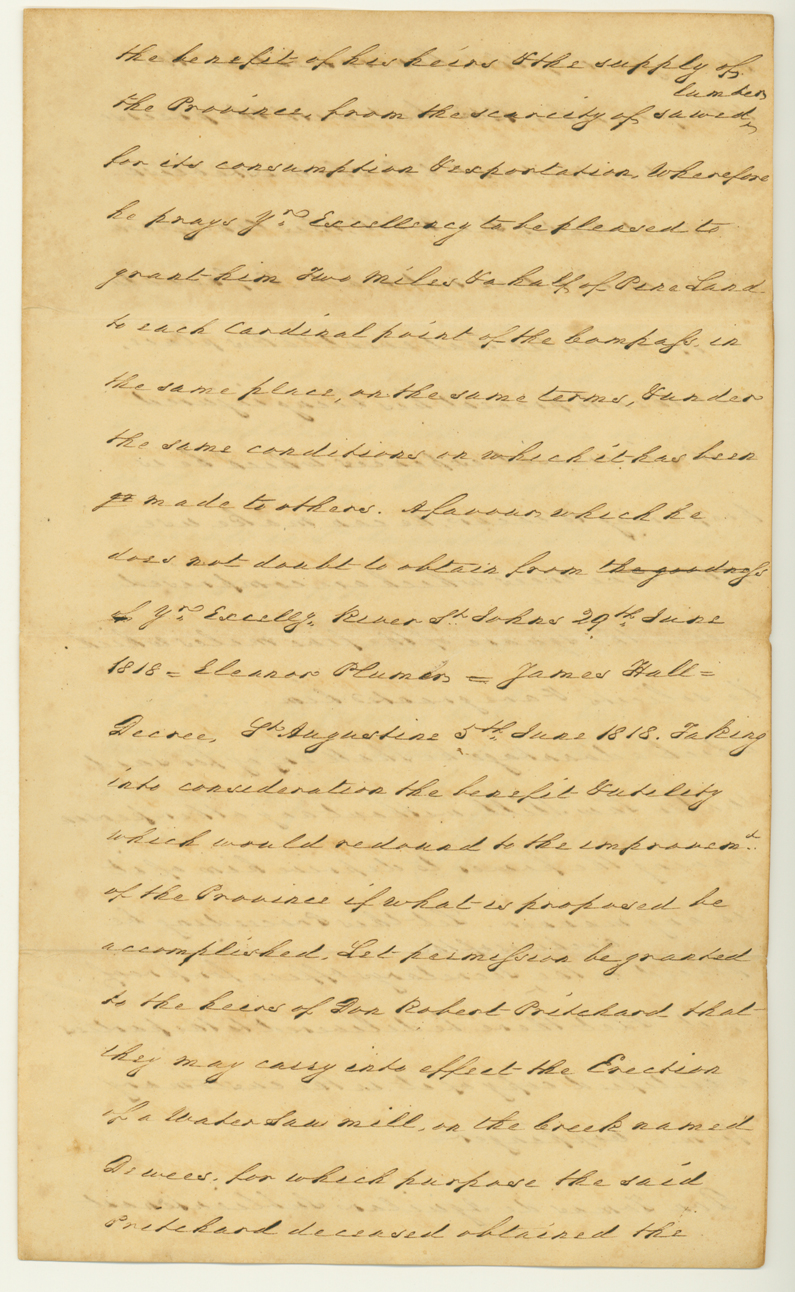 the benefit of his heirs & the supply of
lumber
the Province, from the scarcity of sawed
for its consumption & exportation, Wherefore
he prays Yr. Excellency to be pleased to
grant him Two Miles & a half of Pine Land
to each Cardinal point of the Compass, in
the same place, on the same terms, & under
the same conditions on which it has been
gr made to others. A favour which he
does not doubt to obtain from the goodness
of Yr. Excelly. River St. Johns 29th June
1818 = Eleanor Plumer = James Hall =
Decree, St. Augustine 5th. June 1818. Taking
into consideration the benefit & utility
which would redound to the improvemt.
of the Province if what is proposed be
accomplished. Let permission be granted
to the heirs of Don Robert Pritchard that
they may carry into effect the Erection
of a Water Saw mill, on the Creek named
Dewees, for which purpose the said
Pritchard deceased obtained the